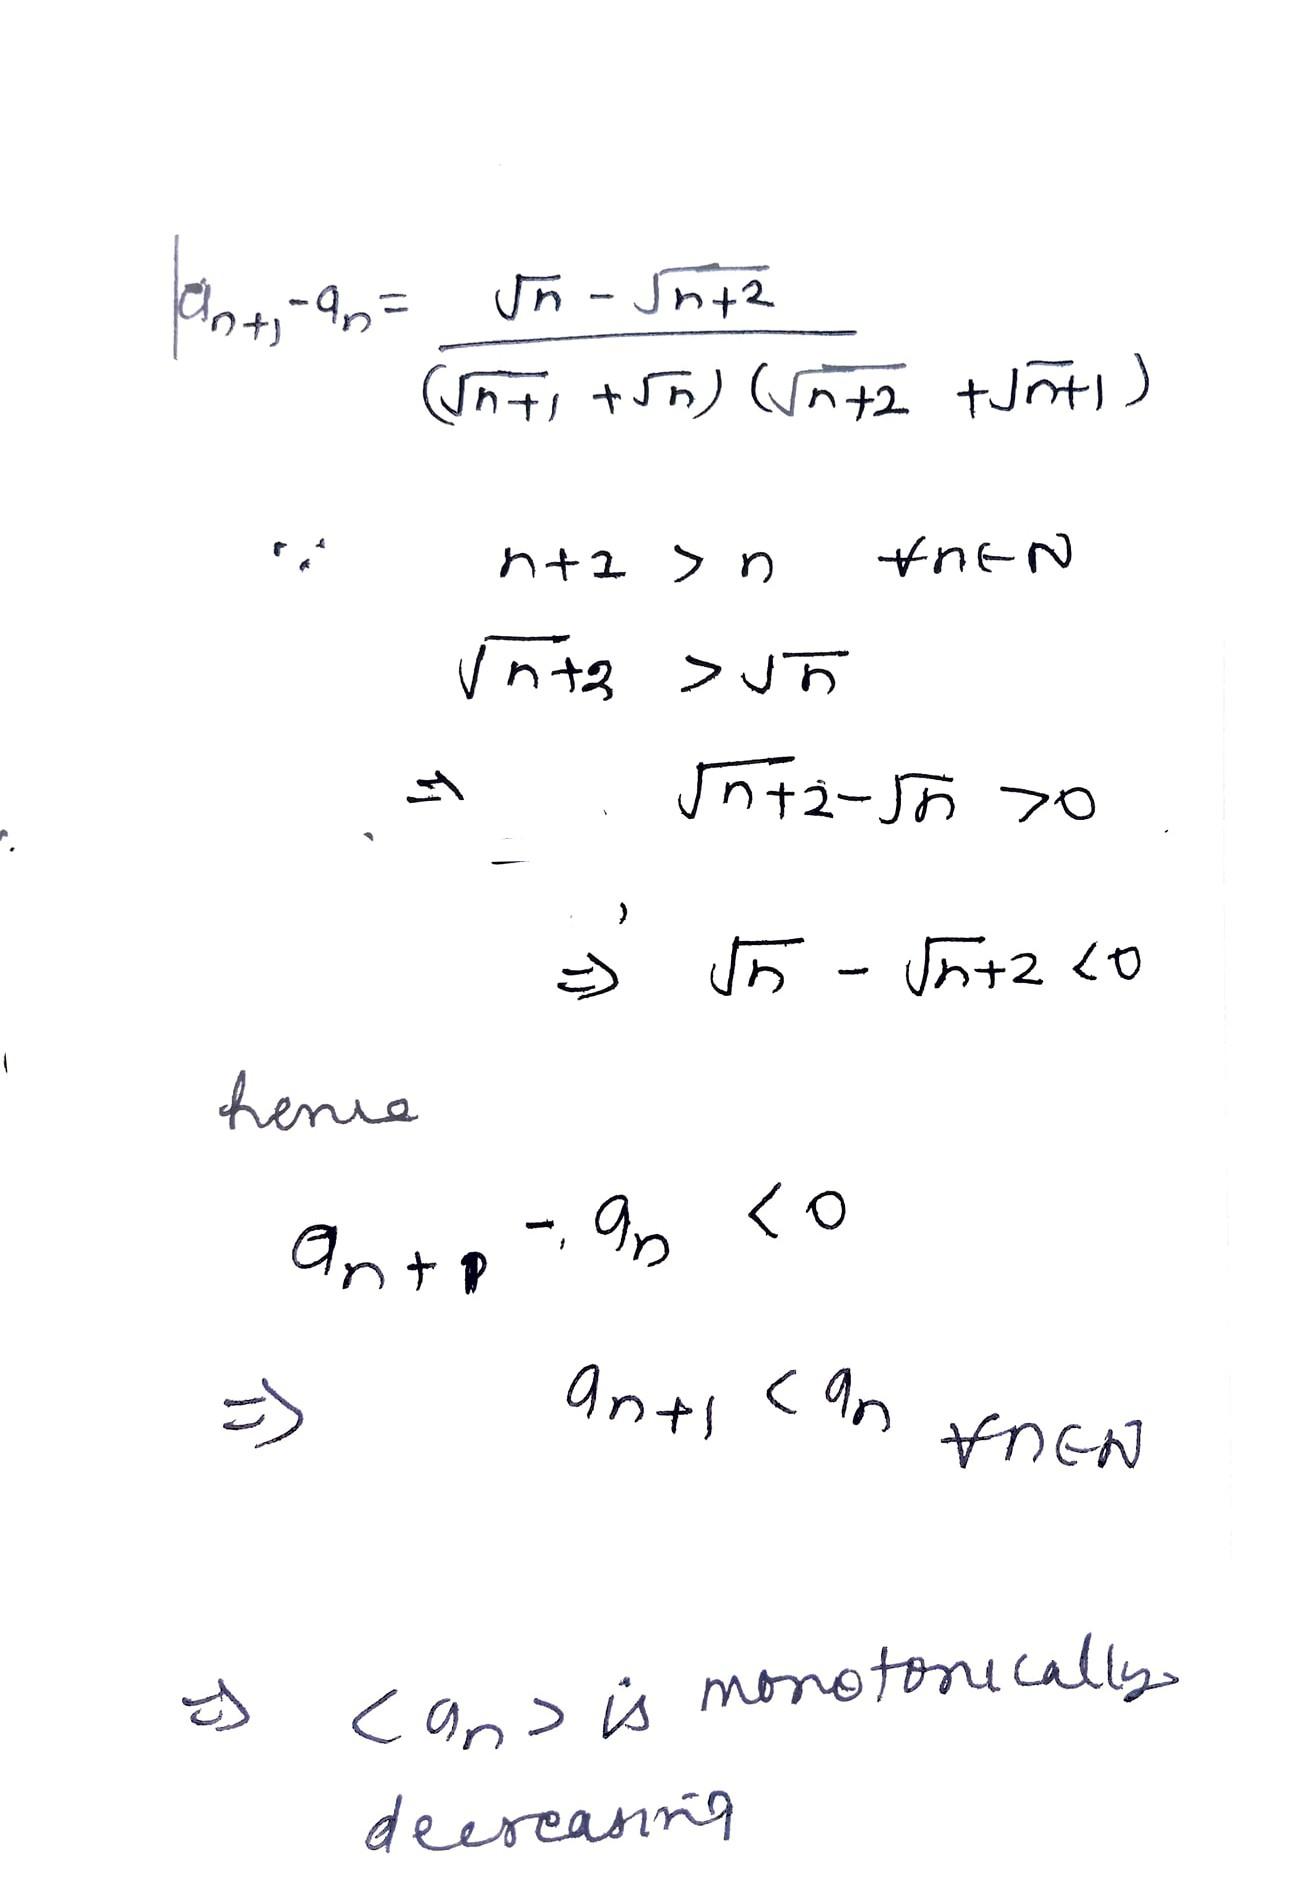 |aₙ₊₁ - aₙ = (√n - √(n+2)) / ((√(n+1) + √n) (√(n+2) + √(n+1)))
∵ n+2 > n ∀n∈N
√(n+2) > √n
⇒ √(n+2) - √n > 0
⇒ √n - √(n+2) < 0
hence
aₙ₊₁ - aₙ < 0
⇒ aₙ₊₁ < aₙ ∀n∈N
⇒ <aₙ> is monotonically
decreasing